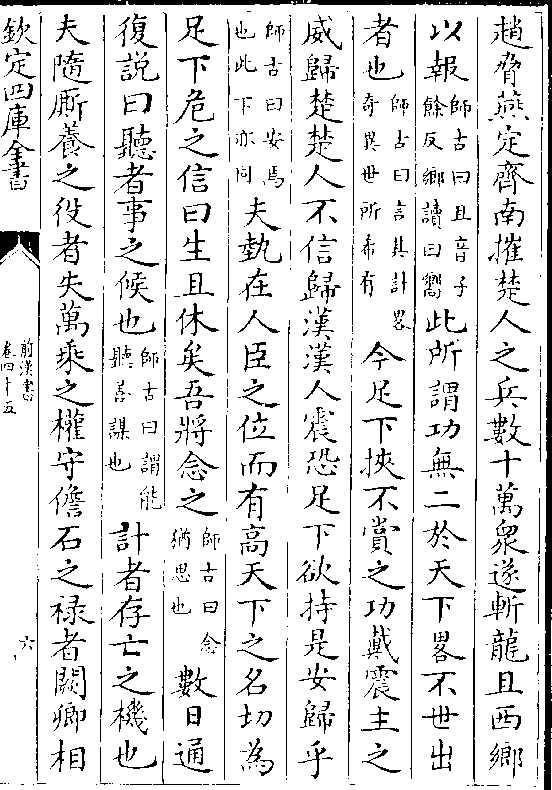 趙脅燕定齊南摧楚人之兵數十萬衆遂斬龍且西鄉
以報師古曰且音子餘反鄉讀曰嚮此所謂功無二於天下畧不世出
者也師古曰言其計畧奇異世所希有今足下挾不賞之功戴震主之
威歸楚楚人不信歸漢漢人震恐足下欲持是安歸乎
師古曰安焉也此下亦同夫埶在人臣之位而有高天下之名切為
足下危之信曰生且休矣吾將念之師古曰念猶思也數日通
復說曰聽者事之候也師古曰謂能聽善謀也計者存亡之機也
夫隨厮養之役者失萬乘之權守儋石之禄者闕卿相
欽定四庫全書
前漢書
卷四十五
六